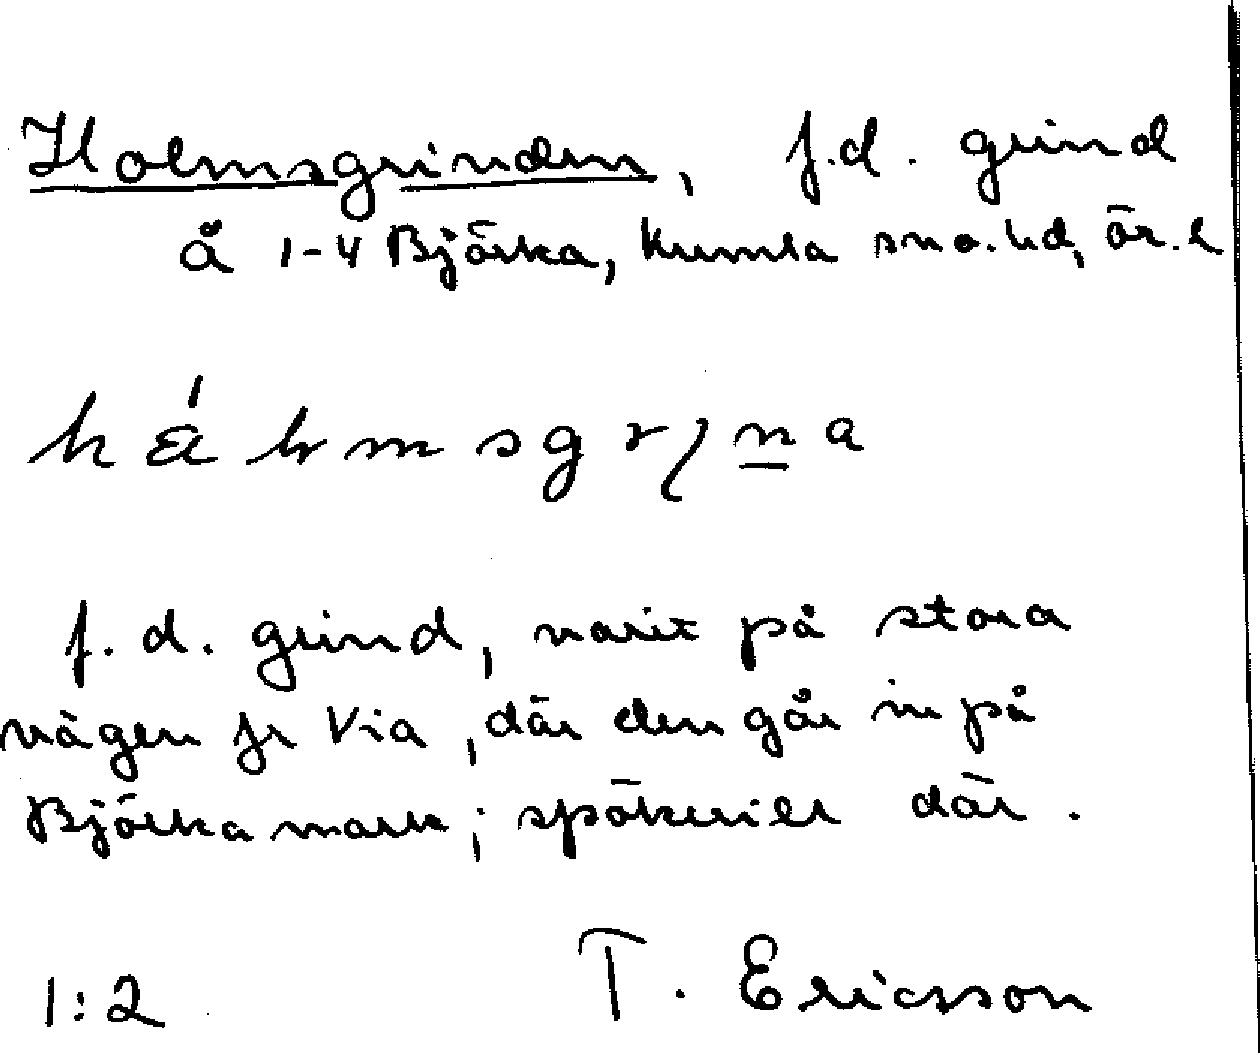 Holmsgrinden, f.d. grind
å 1-4 Björka, Kumla sn o. hd, ör. l
f. d. grind, varit på stora
vägen fr Via, där den går in på
Björka mark; spökeriet där.
1:2 T. Ericsson